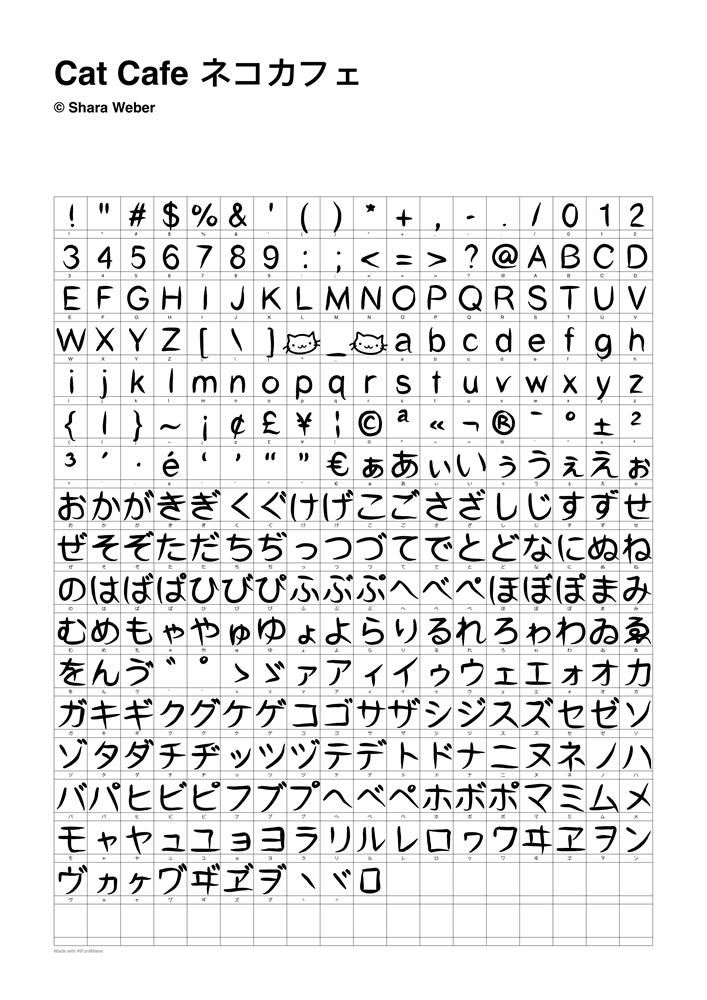 Cat Cafe ネコカフェ
© Shara Weber
! " # $ % & ' ( ) * + , - . / 0 1 2
3 4 5 6 7 8 9 : ; < = > ? @ A B C D
E F G H I J K L M N O P Q R S T U V
W X Y Z [ \ ] _ a b c d e f g h
i j k l m n o p q r s t u v w x y z
{ | } ~ ¡ ¢ £ ¥ ¦ © ª « ¬ ® ¯ ° ± ²
³ ´ · é ‘ ’ “ ” € ぁ あ ぃ い ぅ う ぇ え ぉ
お か が き ぎ く ぐ け げ こ ご さ ざ し じ す ず せ
ぜ そ ぞ た だ ち ぢ っ つ づ て で と ど な に ぬ ね
の は ば ぱ ひ び ぴ ふ ぶ ぷ へ べ ぺ ほ ぼ ぽ ま み
む め も ゃ や ゅ ゆ ょ よ ら り る れ ろ ゎ わ ゐ ゑ
を ん ゔ ゛ ゜ ゝ ゞ ァ ア ィ イ ゥ ウ ェ エ ォ オ カ
ガ キ ギ ク グ ケ ゲ コ ゴ サ ザ シ ジ ス ズ セ ゼ ソ
ゾ タ ダ チ ヂ ッ ツ ヅ テ デ ト ド ナ ニ ヌ ネ ノ ハ
バ パ ヒ ビ ピ フ ブ プ ヘ ベ ペ ホ ボ ポ マ ミ ム メ
モ ャ ヤ ュ ユ ョ ヨ ラ リ ル レ ロ ヮ ワ ヰ ヱ ヲ ン
ヴ ヵ ヶ ヷ ヸ ヹ ヺ ヽ ヾ
Made with iFontMaker